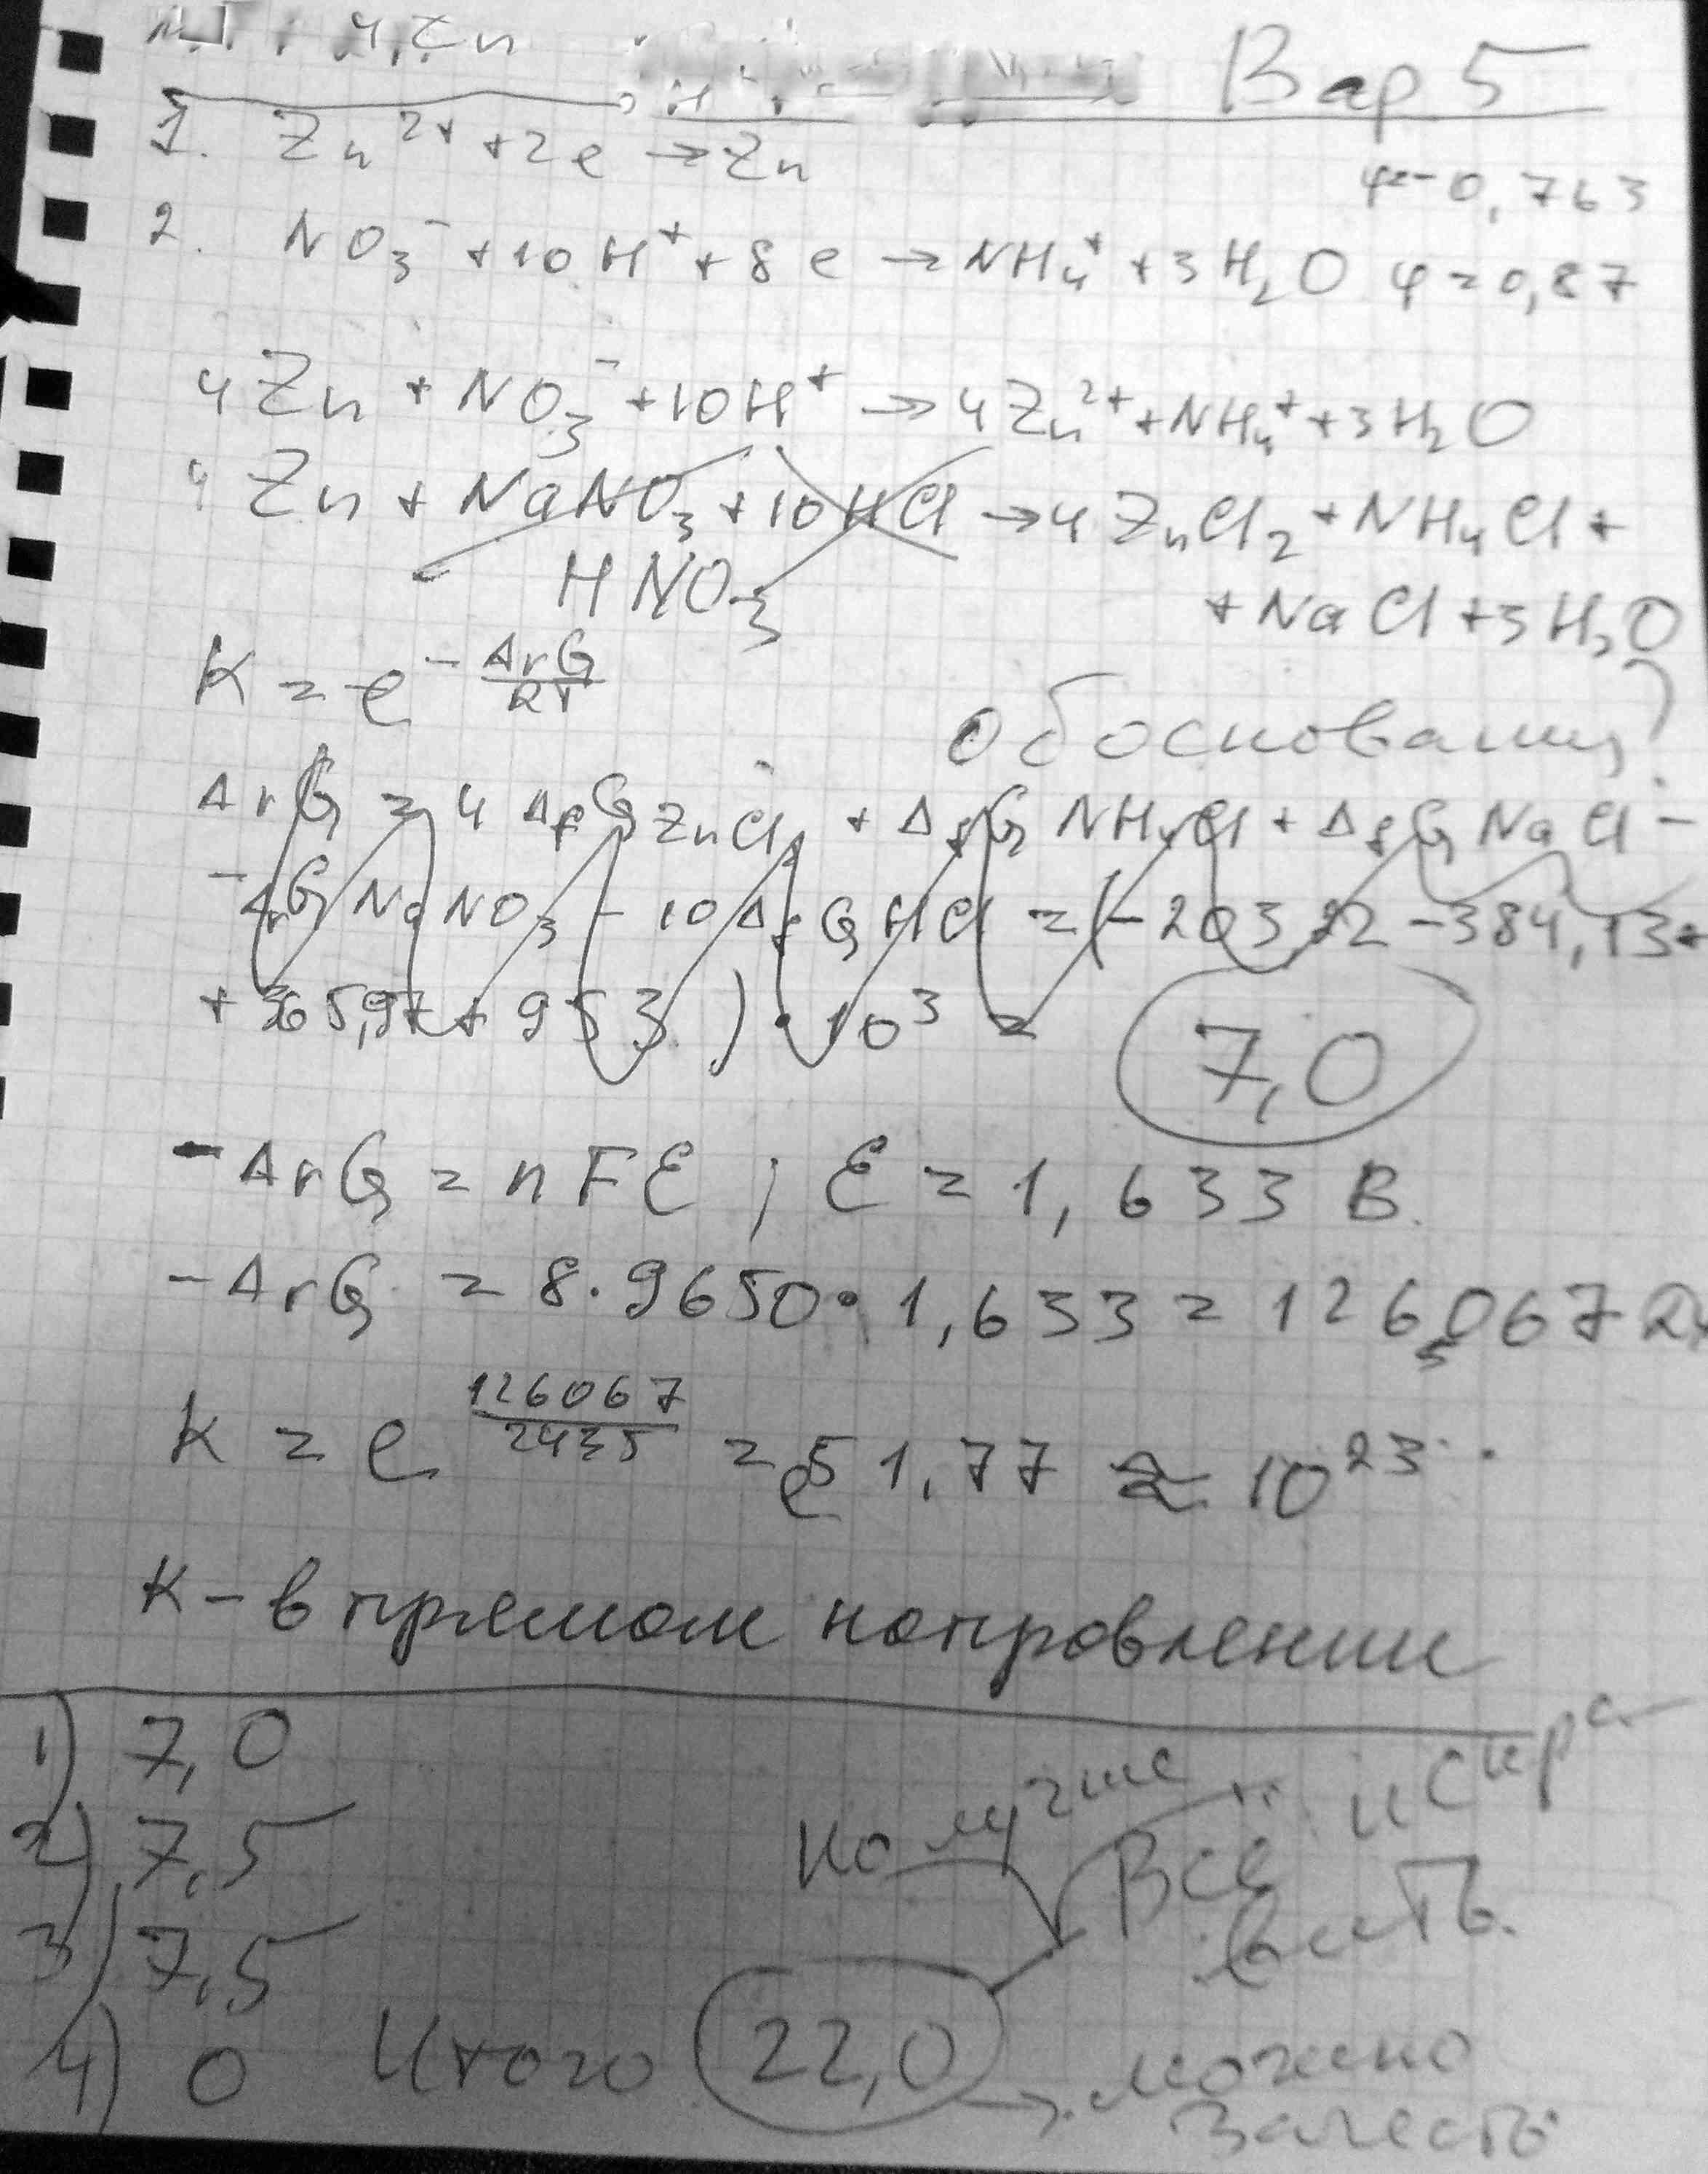 4, Zn
Вар 5
1. Zn²⁺ + 2e → Zn φ=-0,763
2. NO₃⁻ + 10H⁺ + 8e → NH₄⁺ + 3H₂O φ=0,87
4Zn + NO₃⁻ + 10H⁺ → 4Zn²⁺ + NH₄⁺ + 3H₂O
4Zn + NaNO₃ + 10HCl → 4ZnCl₂ + NH₄Cl +
HNO₃ + NaCl + 3H₂O
K = e^(-ΔrG/RT)
обоснования?
ΔrG = 4 ΔfG ZnCl₂ + ΔfG NH₄Cl + ΔfG NaCl -
- ΔfG NaNO₃ - 10 ΔfG HCl = (-203,22 - 384,13 +
+ 365,9 + 953) · 10³ =
7,0
-ΔrG = nFE ; E = 1,633 В.
-ΔrG = 8·9650·1,633 = 126067
K = e^(126067/2435) = e^51,77 ≈ 10²³
К - в прямом направлении
1) 7,0
2) 7,5
3) 7,5
4) 0 Итого 22,0
но лучше
всё испра
вить.
можно
зачесть